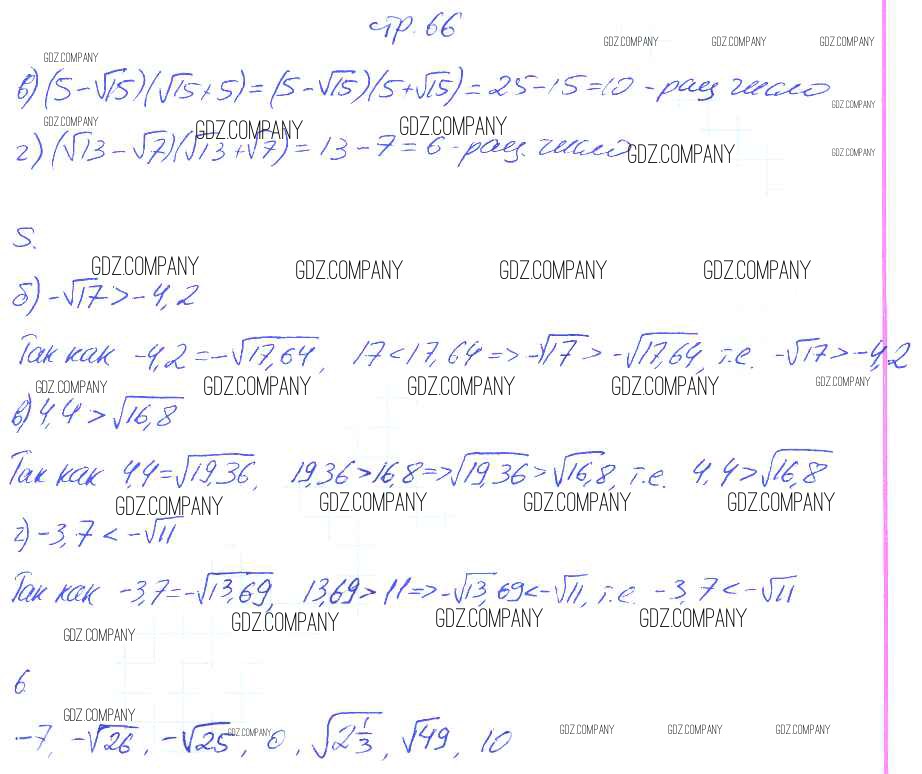 стр. 66
GDZ.COMPANY GDZ.COMPANY GDZ.COMPANY
GDZ.COMPANY
в) (5-√15)(√15+5)=(5-√15)(5+√15)=25-15=10 - рац число
GDZ.COMPANY
GDZ.COMPANY GDZ.COMPANY GDZ.COMPANY
г) (√13-√7)(√13+√7)=13-7=6 - рац. число
GDZ.COMPANY GDZ.COMPANY
5.
GDZ.COMPANY GDZ.COMPANY GDZ.COMPANY GDZ.COMPANY
б) -√17>-4,2
Так как -4,2=-√17,64, 17<17,64=>-√17>-√17,64, т.е. -√17>-4,2
GDZ.COMPANY GDZ.COMPANY GDZ.COMPANY GDZ.COMPANY GDZ.COMPANY
в) 4,4>√16,8
Так как 4,4=√19,36, 19,36>16,8=>√19,36>√16,8, т.е. 4,4>√16,8
GDZ.COMPANY GDZ.COMPANY GDZ.COMPANY GDZ.COMPANY
г) -3,7<-√11
Так как -3,7=-√13,69, 13,69>11=>-√13,69<-√11, т.е. -3,7<-√11
GDZ.COMPANY GDZ.COMPANY GDZ.COMPANY GDZ.COMPANY
6
GDZ.COMPANY GDZ.COMPANY GDZ.COMPANY GDZ.COMPANY GDZ.COMPANY
-7, -√26, -√25, 0, √2 1/3, √49, 10